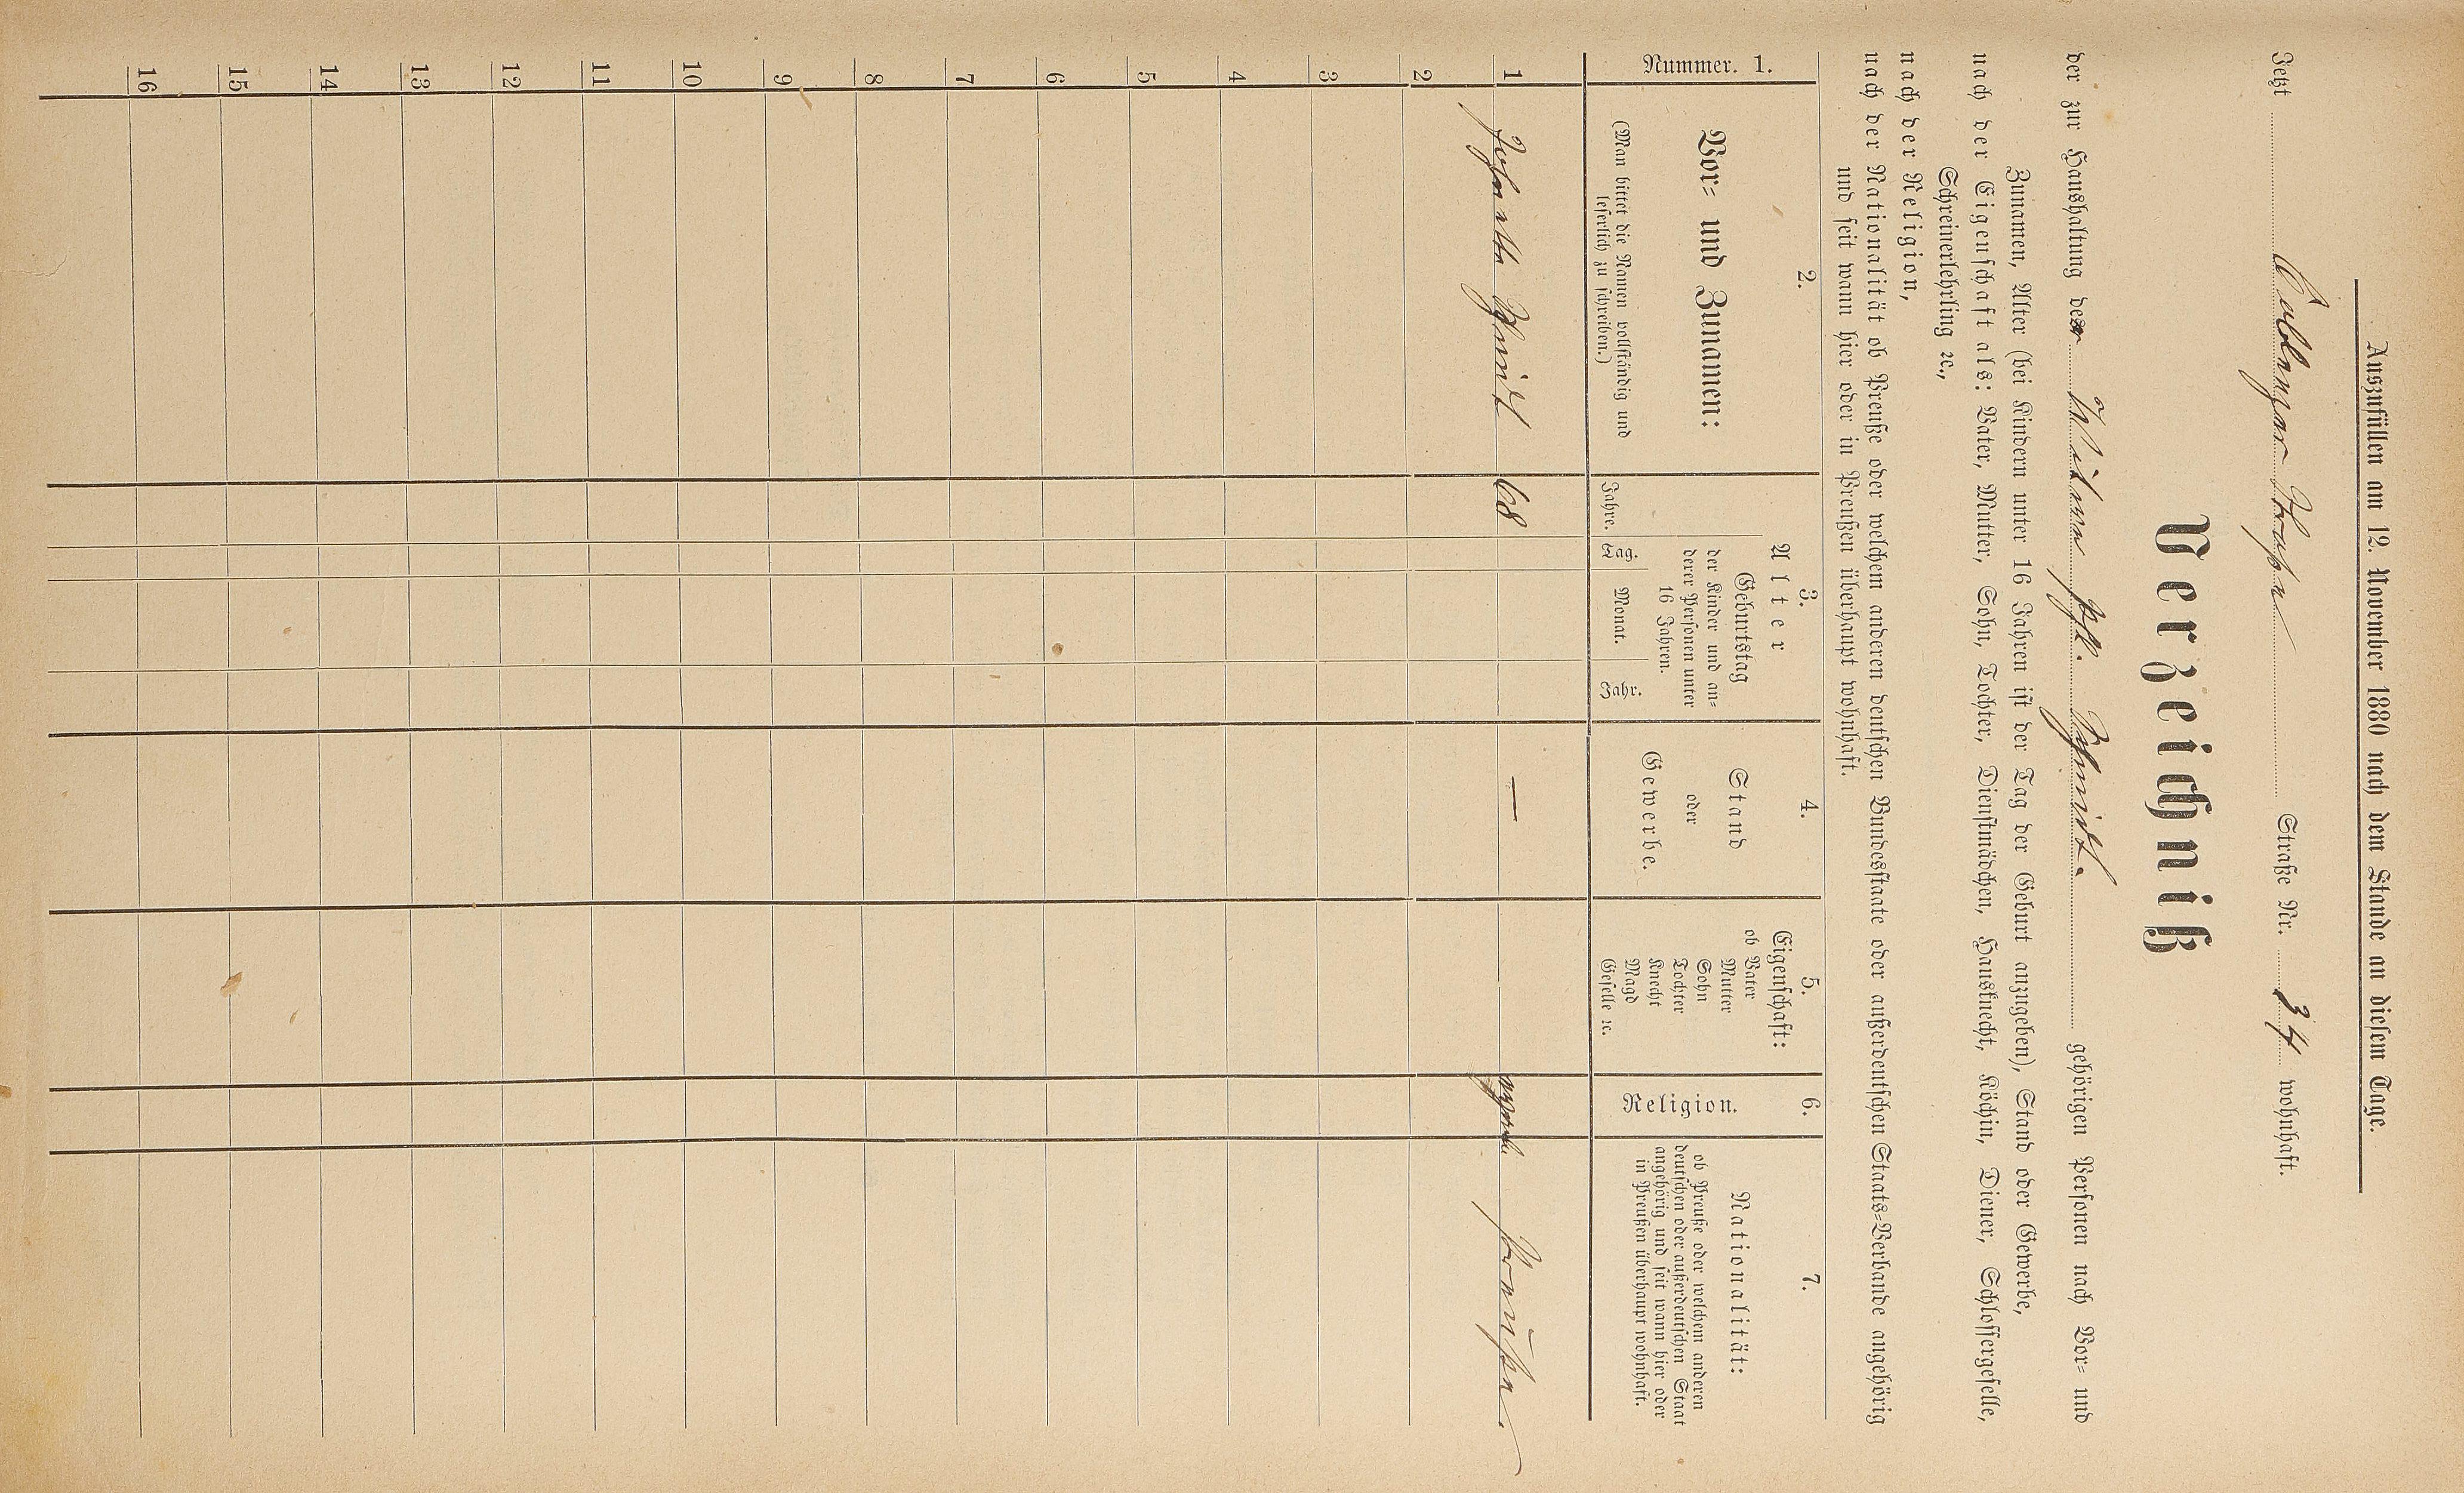 Auszufüllen am 12. November 1880 nach dem Stande an diesem Tage.
Jetzt Coblenzer Straße Straße Nr. 34 wohnhaft.
Verzeichniß
der zur Haushaltung der Wittwe gehörigen Personen nach Vor- und
Zunamen, Alter (bei Kindern unter 16 Jahren ist der Tag der Geburt anzugeben), Stand oder Gewerbe,
nach der Eigenschaft als: Vater, Mutter, Sohn, Tochter, Dienstmädchen, Hausknecht, Köchin, Diener, Schlossergeselle,
Schreinerlehrling ꝛc.,
nach der Religion,
nach der Nationalität ob Preuße oder welchem anderen deutschen Bundesstaate oder außerdeutschen Staats-Verbande angehörig
und seit wann hier oder in Preußen überhaupt wohnhaft.
Nummer. 1.
2.
Vor- und Zunamen:
(Man bittet die Namen vollständig und
leserlich zu schreiben.)
3.
Alter
Jahre.
Geburtstag
der Kinder und an-
derer Personen unter
16 Jahren.
Tag.
Monat.
Jahr.
4.
Stand
oder
Gewerbe.
5.
Eigenschaft:
ob Vater
Mutter
Sohn
Tochter
Knecht
Magd
Geselle ꝛc.
6.
Religion.
7.
Nationalität:
ob Preuße oder welchem anderen
deutschen oder außerdeutschen Staat
angehörig und seit wann hier oder
in Preußen überhaupt wohnhaft.
1 68 — Preußen.
2
3
4
5
6
7
8
9
10
11
12
13
14
15
16